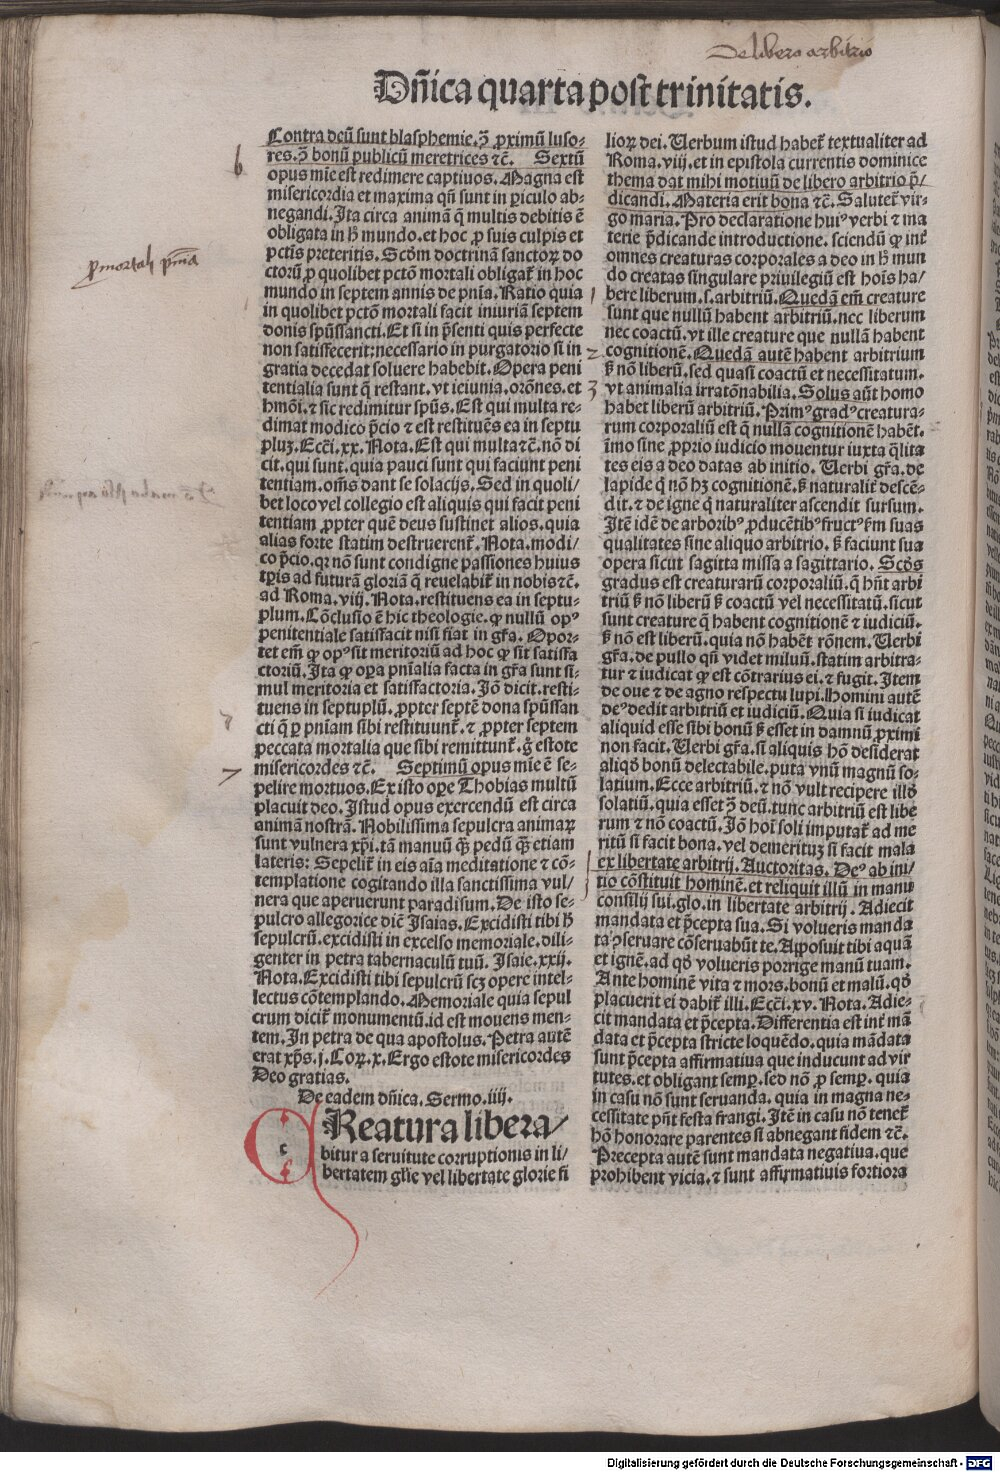 De libero arbitrio
Dñica quarta post trinitatis.
Contra deũ sunt blasphemie. ꝯ̃ ꝓximũ luso⸗
res. ꝯ̃ bonũ publicũ meretrices ⁊c̃. Sextũ
opus mie est redimere captiuos. Magna est
misericordia et maxima qñ sunt in ꝑiculo ab⸗
negandi. Ita circa animã q̃ multis debitis ẽ
obligata in h̃ mundo. et hoc ꝓ suis culpis et
pctĩs preteritis. Scðm doctrinã sanctoꝝ do
ctorũ ꝓ quolibet pctõ mortali obligat̃ in hoc
mundo in septem annis de pnĩa. Ratio quia
in quolibet pctõ mortali facit iniuriã septem
donis spũssancti. Et si in p̃senti quis perfecte
non satisfecerit: necessario in purgatorio si in
gratia decedat soluere habebit. Opera peni
tentialia sunt q̃ restant. vt ieiunia. orõnes. et
hmõi. ⁊ sic redimitur spũs. Est qui multa re⸗
dimat modico p̃cio ⁊ est restituẽs ea in septu
pluꝫ. Ecc̃i. xx. Nota. Est qui multa ⁊c̃. nõ di
cit. qui sunt. quia pauci sunt qui faciunt peni
tentiam. om̃s dant se solacijs. Sed in quoli/
bet loco vel collegio est aliquis qui facit peni
tentiam ꝓpter quẽ deus sustinet alios. quia
alias forte statim destruerent̃. Nota. modi/
co p̃cio. qꝛ nõ sunt condigne passiones huius
tp̃is ad futurã gloriã q̃ reuelabit̃ in nobis ⁊c̃.
ad Roma. viij. Nota. restituens ea in septu⸗
plum. Cõclusio ẽ hic theologie. ꝙ nullũ opꝰ
penitentiale satisfacit nisi fiat in gr̃a. Opor⸗
tet em̃ ꝙ opꝰ sit meritoriũ ad hoc ꝙ sit satisfa
ctoriũ. Ita ꝙ oꝑa pnĩalia facta in gr̃a sunt si⸗
mul meritoria et satisfactoria. Iõ dicit. resti⸗
tuens in septuplũ. ꝓpter septẽ dona spũssan
cti q̃ ꝑ pnĩam sibi restituunt̃. ⁊ ꝓpter septem
peccata mortalia que sibi remittunt̃. g̊ estote
misericordes ⁊c̃. Septimũ opus mie ẽ se⸗
pelire mortuos. Ex isto oꝑe Thobias multũ
placuit deo. Istud opus exercendũ est circa
animã nostrã. Nobilissima sepulcra animaꝝ
sunt vulnera xp̃i. tã manuũ q̃ꝫ pedũ q̃ꝫ etiam
lateris: Sepelit̃ in eis aĩa meditatione ⁊ cõ⸗
templatione cogitando illa sanctissima vul/
nera que aperuerunt paradisum. De isto se⸗
pulcro allegorice dic̃ Isaias. Excidisti tibi h̃
sepulcrũ. excidisti in excelso memoriale. dili⸗
genter in petra tabernaculũ tuũ. Isaie. xxij.
Nota. Excidisti tibi sepulcrũ scꝫ opere intel⸗
lectus cõtemplando. Memoriale quia sepul
crum dicit̃ monumentũ. id est mouens men⸗
tem. In petra de qua apostolus. Petra autẽ
erat xp̃s. j. Coꝝ. x. Ergo estote misericordes
Deo gratias.
De eadem dñica. Sermo. iiij.
CReatura libera/
bitur a seruitute corruptionis in li/
bertatem gl̃ie vel libertate glorie fi
lioꝝ dei. Uerbum istud habet̃ textualiter ad
Roma. viij. et in epistola currentis dominice
thema dat mihi motiuũ de libero arbitrio p̃/
dicandi. Materia erit bona ⁊c̃. Salutet̃ vir⸗
go maria. Pro declaratione huiꝰ verbi ⁊ ma
terie p̃dicande introductione. sciendũ ꝙ int̃
omnes creaturas corporales a deo in h̃ mun
do creatas singulare priuilegiũ est hoĩs ha/
bere liberum. s. arbitriũ. Quedã em̃ creature
sunt que nullũ habent arbitriũ. nec liberum
nec coactũ. vt ille creature que nullã habent
cognitionẽ. Quedã autẽ habent arbitrium
s̃ nõ liberũ. sed quasi coactũ et necessitatum.
vt animalia irratõnabilia. Solus aũt homo
habet liberũ arbitriũ. Primꝰ gradꝰ creatura⸗
rum corporaliũ est q̃ nullã cognitionẽ habẽt.
ĩmo sine ꝓprio iudicio mouentur iuxta q̃lita
tes eis a deo datas ab initio. Uerbi gr̃a. de
lapide q̃ nõ hꝫ cognitionẽ. s̃ naturalit̃ descẽ⸗
dit. ⁊ de igne q̃ naturaliter ascendit sursum.
Itẽ idẽ de arboribꝰ ꝓducẽtibꝰ fructꝰ ẞm suas
qualitates sine aliquo arbitrio. s̃ faciunt sua
opera sicut sagitta missa a sagittario. Scðs
gradus est creaturarũ corporaliũ. q̃ hñt arbi
triũ s̃ nõ liberũ s̃ coactũ vel necessitatũ. sicut
sunt creature q̃ habent cognitionẽ ⁊ iudiciũ.
s̃ nõ est liberũ. quia nõ habẽt rõnem. Uerbi
gr̃a. de pullo qñ videt miluũ. statim arbitra⸗
tur ⁊ iudicat ꝙ est cõtrarius ei. ⁊ fugit. Item
de oue ⁊ de agno respectu lupi. Homini autẽ
deꝰ dedit arbitriũ et iudiciũ. Quia si iudicat
aliquid esse sibi bonũ s̃ esset in damnũ ꝓximi
non facit. Uerbi gr̃a. si aliquis hõ desiderat
aliqð bonũ delectabile. puta vnũ magnũ so⸗
latium. Ecce arbitriũ. ⁊ nõ vult recipere illð
solatiũ. quia esset ꝯ̃ deũ. tunc arbitriũ est libe
rum ⁊ nõ coactũ. Iõ hoĩ soli imputat̃ ad me
ritũ si facit bona. vel demerituꝫ si facit mala
ex libertate arbitrij. Auctoritas. Deꝰ ab ini/
tio cõstituit hominẽ. et reliquit illũ in manu
consilij sui. glo. in libertate arbitrij. Adiecit
mandata et p̃cepta sua. Si volueris manda
ta ꝯseruare cõseruabũt te. Apposuit tibi aquã
et ignẽ. ad qð volueris porrige manũ tuam.
Ante hominẽ vita ⁊ mors. bonũ et malũ. qð
placuerit ei dabit̃ illi. Ecc̃i. xv. Nota. Adie⸗
cit mandata et p̃cepta. Differentia est int̃ mã
data et p̃cepta stricte loquẽdo. quia mãdata
sunt p̃cepta affirmatiua que inducunt ad vir
tutes. et obligant semꝑ. sed nõ ꝓ semꝑ. quia
in casu nõ sunt seruanda. quia in magna ne⸗
cessitate pñt festa frangi. Itẽ in casu nõ tenet̃
hõ honorare parentes si abnegant fidem ⁊c̃.
Precepta autẽ sunt mandata negatiua. que
prohibent vicia. ⁊ sunt affirmatiuis fortiora
6
ꝓ mortali pñia
7
1
2
3
Digitalisierung gefördert durch die Deutsche Forschungsgemeinschaft - DFG